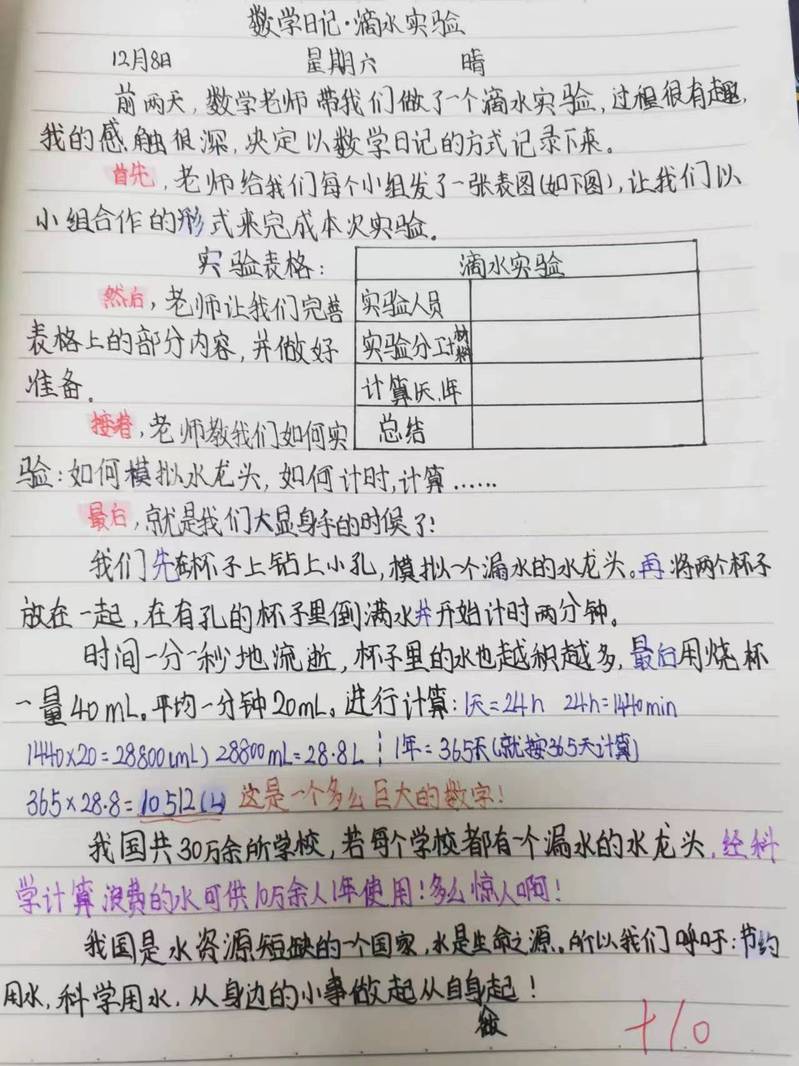 数学日记·滴水实验
12月8日 星期六 晴
前两天,数学老师带我们做了一个滴水实验,过程很有趣,
我的感触很深,决定以数学日记的方式记录下来。
首先,老师给我们每个小组发了一张表图(如下图),让我们以
小组合作的形式来完成本次实验。
实验表格:
滴水实验
然后,老师让我们完善
实验人员
表格上的部分内容,并做好
实验分工材料
准备。
计算1天,1年
接着,老师教我们如何实
总结
验:如何模拟水龙头,如何计时,计算……
最后,就是我们大显身手的时候了!
我们先在杯子上钻上小孔,模拟一个漏水的水龙头。再将两个杯子
放在一起,在有孔的杯子里倒满水并开始计时两分钟。
时间一分一秒地流逝,杯子里的水也越积越多,最后用烧杯
一量40mL。平均一分钟20mL。进行计算:1天=24h 24h=1440min
1440×20=28800(mL) 28800mL=28.8L ¦ 1年=365天(就按365天计算)
365×28.8=10512(L) 这是一个多么巨大的数字!
我国共30万余所学校,若每个学校都有一个漏水的水龙头,经科
学计算浪费的水可供10万余人1年使用!多么惊人啊!
我国是水资源短缺的一个国家,水是生命之源。所以我们呼吁:节约
用水,科学用水,从身边的小事做起从自身做起!
+10